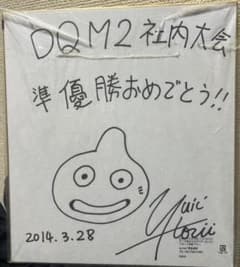 DQM2 社内大会
準優勝おめでとう!!
2014.3.28